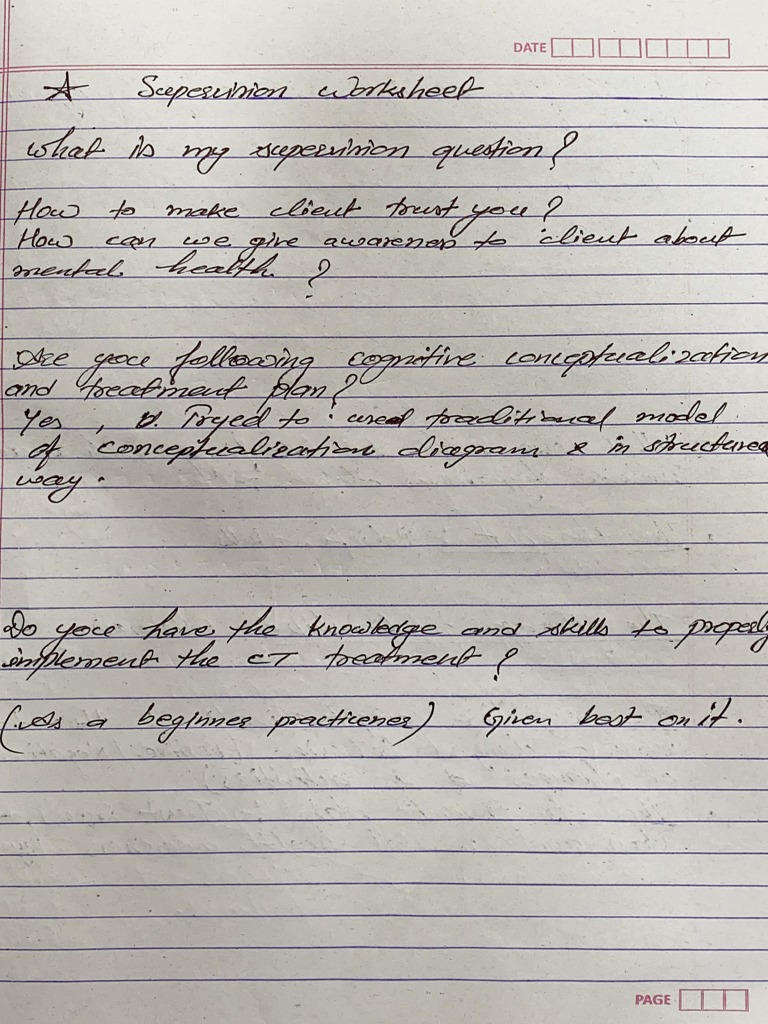 DATE
☆ Supervision Worksheet
What is my supervision question?
How to make client trust you?
How can we give awareness to client about
mental health ?
Are you following cognitive conceptualization
and treatment plan?
Yes , Tryed to used traditional model
of conceptualization diagram & in structured
way.
Do you have the knowledge and skills to properly
implement the CT treatment ?
(As a beginner practicener) Given best on it.
PAGE